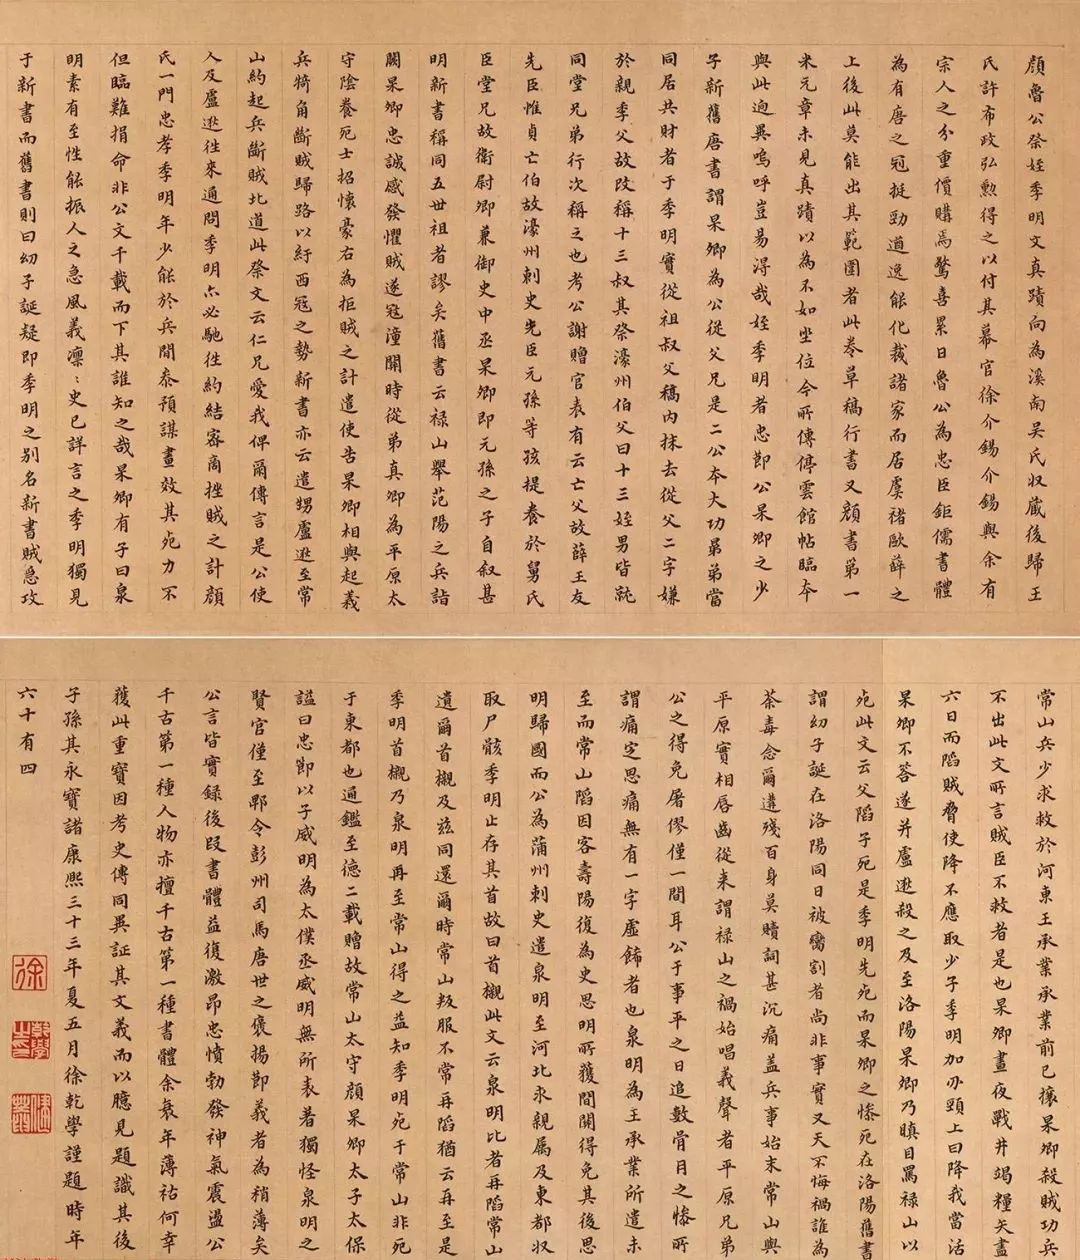 顏魯公祭姪季明文真蹟向為溪南吳氏收藏後歸王
氏許布政弘勲得之以付其幕官徐介錫介錫與余有
宗人之分重價購焉驚喜累日魯公為忠臣鉅儒書體
為有唐之冠挺勁遒逸能化裁諸家而居虞褚歐薛之
上後此莫能出其範圍者此卷草稿行書又顏書第一
米元章未見真蹟以為不如坐位今所傳停雲館帖臨本
與此迥異嗚呼豈易淂哉姪季明者忠節公杲卿之少
子新舊唐書謂杲卿為公從父兄是二公本大功弟弟當
同居共財者于季明實從祖叔父稿內抹去從父二字嫌
於親季父故改稱十三叔其祭濠州伯父曰十三姪男皆就
同堂兄弟行次稱之也考公謝贈官表有云亡父故薛王友
先臣惟貞亡伯故濠州刺史先臣元孫等孩提養於舅氏
臣堂兄故衛尉卿兼御史中丞杲卿即元孫之子自叙甚
明新書稱同五世祖者謬矣舊書云祿山舉范陽之兵詣
闕杲卿忠誠感發懼賊遂寇潼關時從弟真卿為平原太
守陰養死士招懷豪右為拒賊之計遣使告杲卿相與起義
兵犄角斷賊歸路以紓西寇之勢新書亦云遣甥盧逖至常
山約起兵斷賊北道此祭文云仁兄愛我俾爾傳言是公使
人及盧逖往來通問季明亦必馳往約結密商挫賊之計顏
氏一門忠孝季明年少能於兵間泰預謀畫效其死力不
但臨難捐命非公文千載而下其誰知之哉杲卿有子曰泉
明素有至性能振人之急風義凜：史已詳言之季明獨見
于新書而舊書則曰幼子誕疑即季明之别名新書賊急攻
常山兵少求救於河東王承業承業前已攘杲卿殺賊功兵
不出此文所言賊臣不救者是也杲卿晝夜戰井竭糧矢盡
六日而陷賊脅使降不應取少子季明加刃頸上曰降我當活
杲卿不答遂并盧逖殺之及至洛陽杲卿乃瞋目罵祿山以
死此文云父陷子死是季明先死而杲卿之慘死在洛陽舊書
謂幼子誕在洛陽同日被臠割者尚非事實又天不悔禍誰為
荼毒念爾遘殘百身莫贖詞甚沉痛蓋兵事始末常山與
平原實相唇齒從来謂祿山之禍始唱義聲者平原兄弟
公之得免屠僇僅一間耳公于事平之日追數骨月之慘所
謂痛定思痛無有一字虛飾者也泉明為王承業所遣未
至而常山陷因客壽陽復為史思明所獲間關得免其後思
明歸國而公為蒲州刺史遣泉明至河北求親属及東都収
取尸骸季明止存其首故曰首櫬此文云泉明比者再陷常山
遺爾首櫬及茲同還爾時常山叛服不常再陷猶云再至是
季明首櫬乃泉明再至常山得之益知季明死于常山非死
于東都也通鑑至德二載贈故常山太守顏杲卿太子太保
謚曰忠節以子威明為太僕丞威明無所表著獨怪泉明之
賢官僅至郫令彭州司馬唐世之褒揚節義者為稍薄矣
公言皆實録後段書體益復激昂忠憤勃發神氣震盪公
千古第一種人物亦擅千古第一種書體余衰年薄祜何幸
獲此重寶因考史傳同異証其文義而以臆見題識其後
子孫其永寶諸康熙三十三年夏五月徐乾學謹題時年
六十有四
徐
乾學之印
健菴